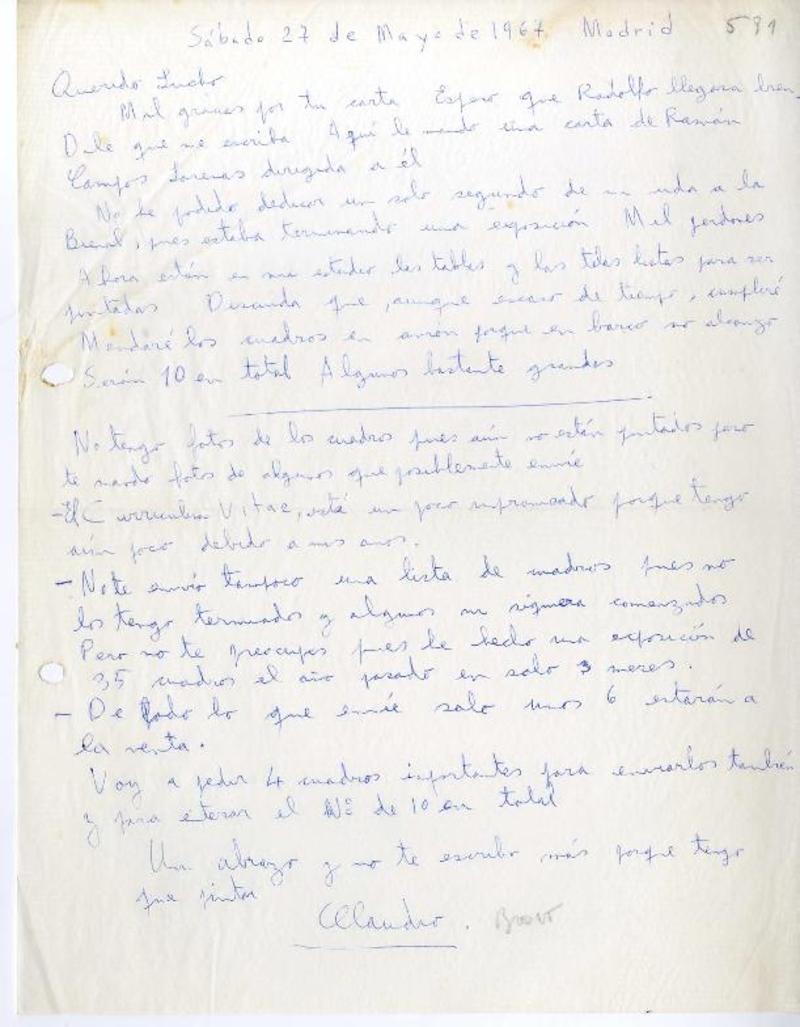 Sábado 27 de Mayo de 1967 Madrid 581
Querido Lucho
Mil gracias por tu carta Espero que Rodolfo llegara bien
Dile que me escriba Aquí le mando una carta de Ramón
Campos Larenas dirigida a él
No he podido dedicar un solo segundo de mi vida a la
Bienal, pues estaba terminando una exposición Mil perdones
Ahora están en mi estudio las tablas y las telas listas para ser
pintadas Descuida que, aunque escaso de tiempo, cumpliré
Mandaré los cuadros en avión porque en barco no alcanzo
Serán 10 en total Algunos bastante grandes
No tengo fotos de los cuadros pues aún no están pintados pero
te mando fotos de algunos que posiblemente envíe
- El Curriculum Vitae, está un poco improvisado porque tengo
aún poco debido a mis anos.
- No te envío tampoco una lista de cuadros pues no
los tengo terminados y algunos ni siquiera comenzados
Pero no te preocupes pues he hecho una exposición de
35 cuadros el año pasado en solo 3 meses.
- De todo lo que envíe solo unos 6 estarán a
la venta.
Voy a pedir 4 cuadros importantes para enviarlos también
y para enterar el Nº de 10 en total
Un abrazo y no te escribo más porque tengo
que pintar
Claudio. Bravo